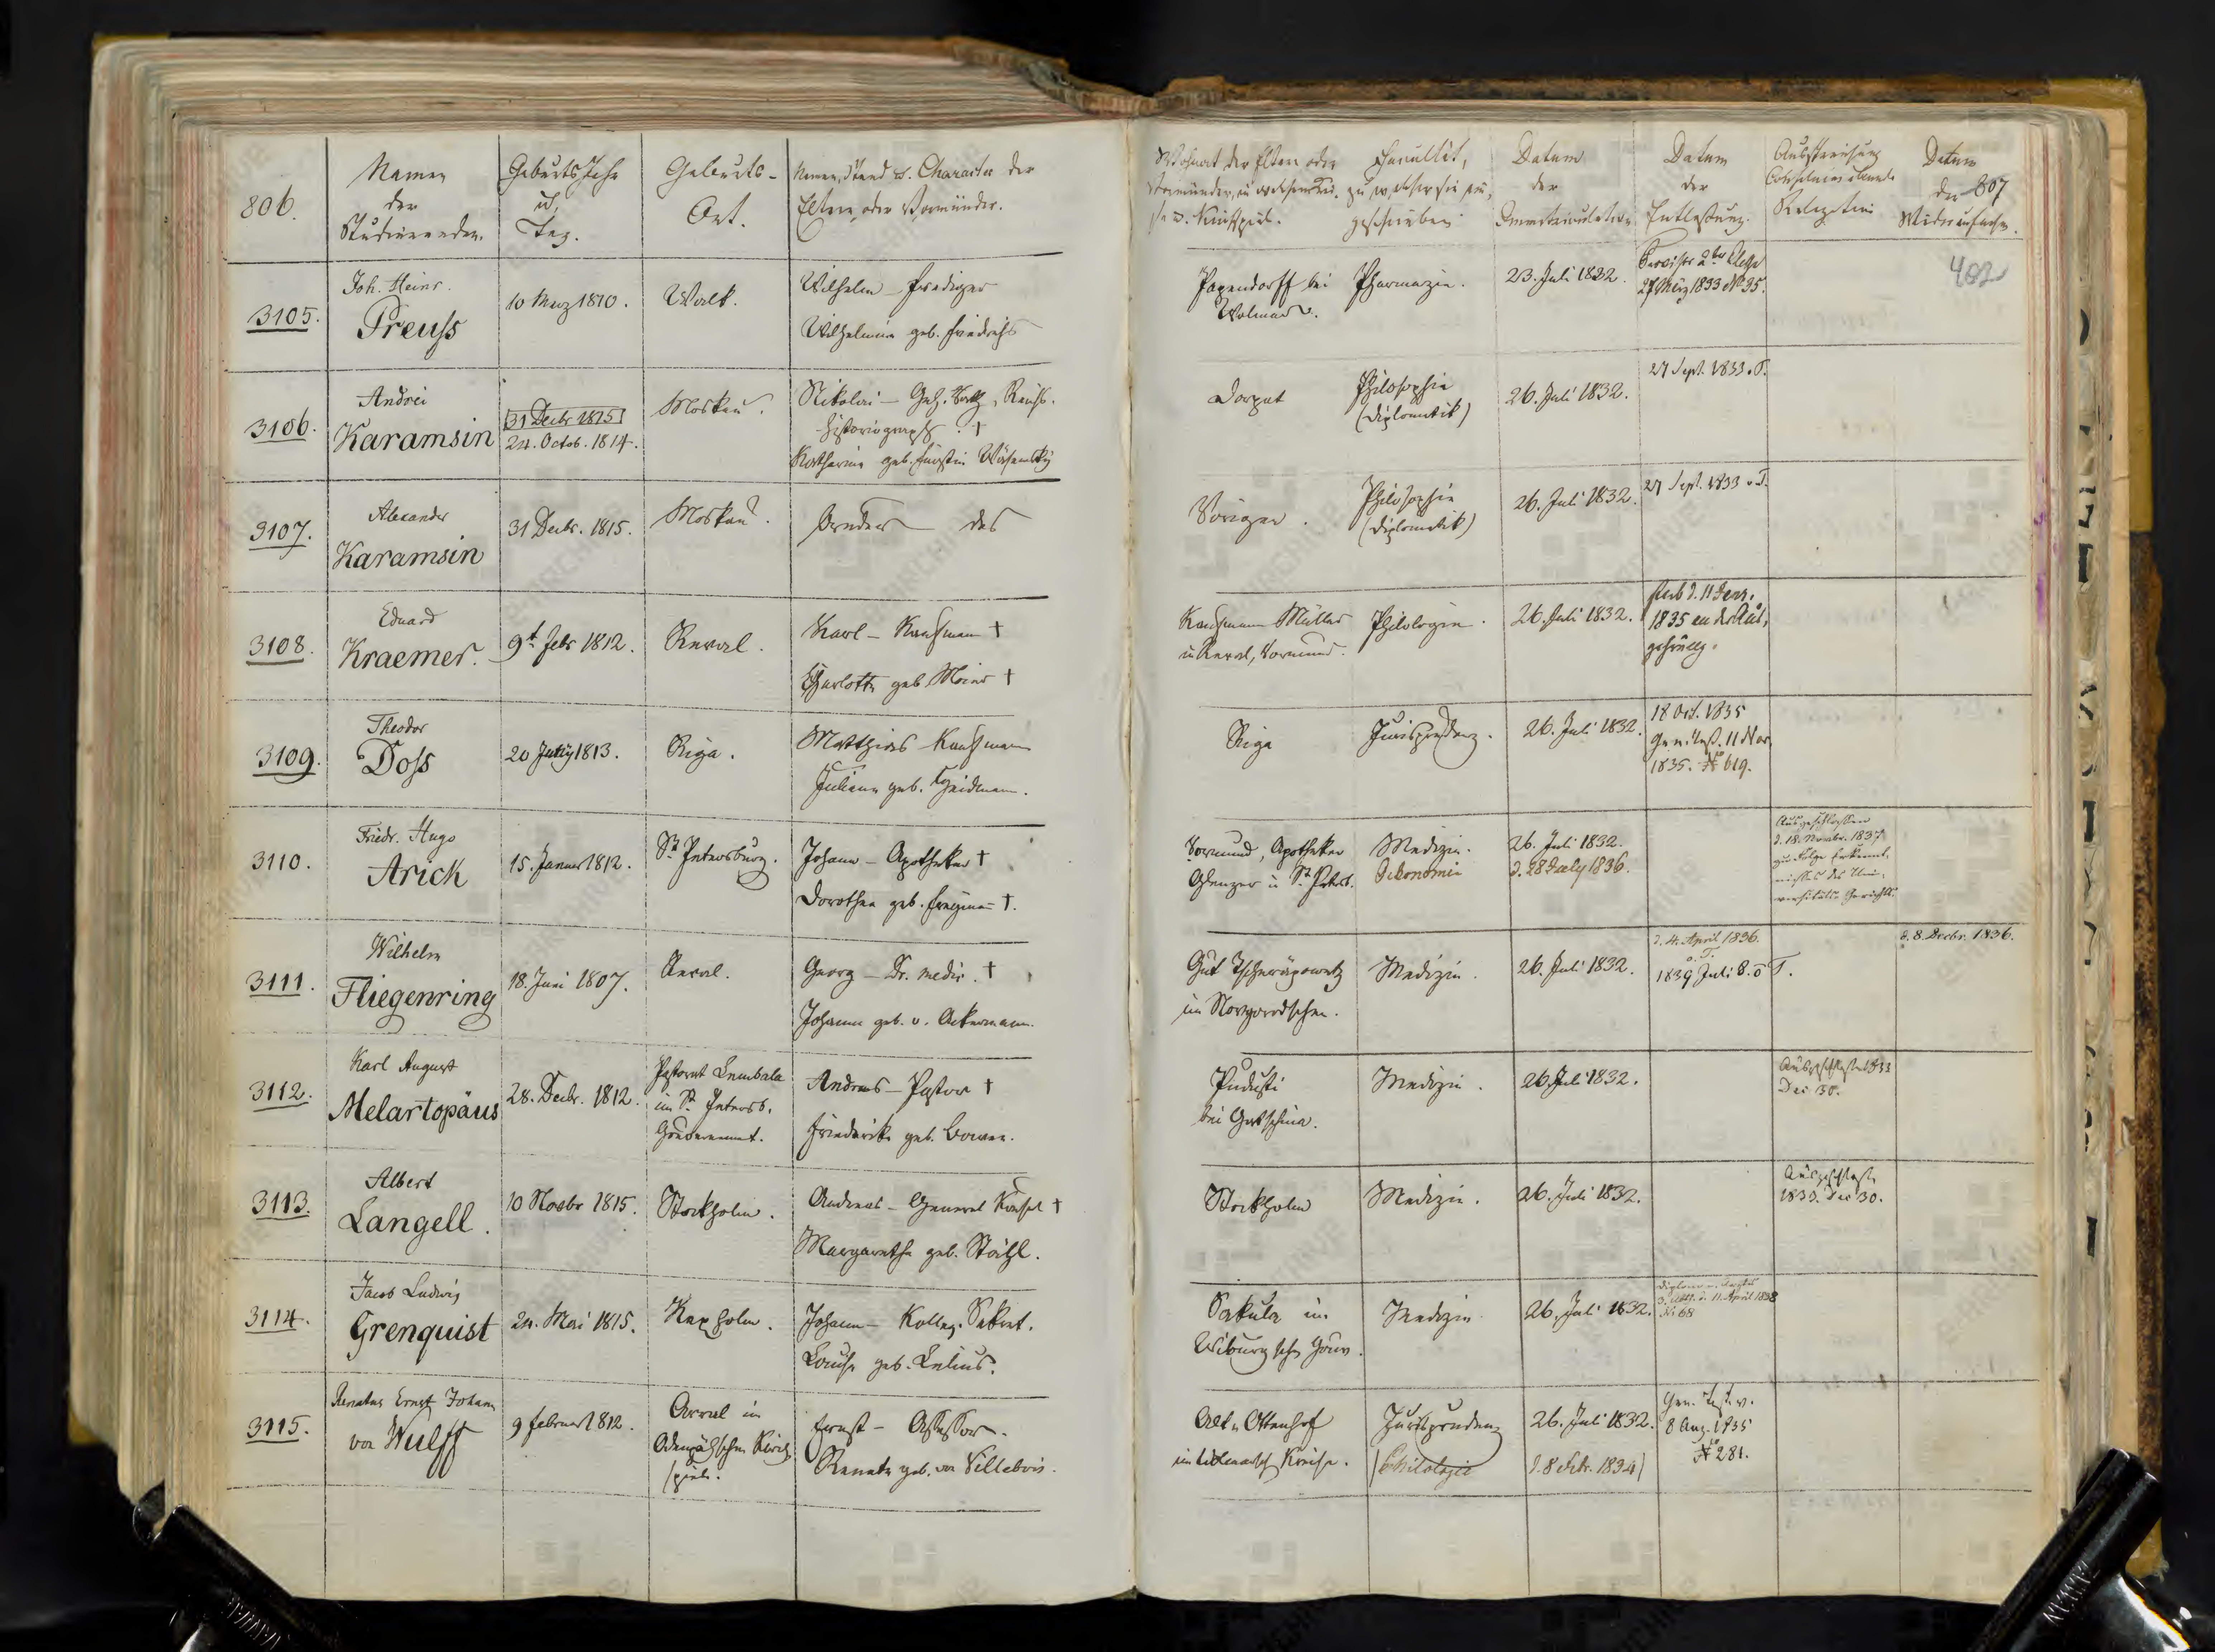 806.
Namen
der
Studierenden.
Geburts Jahr
u.
Tag.
Geburts-
Ort.
Namen, Stand u. Character der
Eltern, oder Vormünder.
Wohnort der Eltern oder
Vormünder, in welchem
u. Kirchspiel.
Facultät,
zu welcher sie sich
geschrieben
Datum
der
Immatriculation
Datum
der
Entlassung.
Ausstreichung
Relegation
Datum
der
Wiederaufnahme.
807
402
3105.
Joh. Heinr.
Preuss
10 März 1810.
Walk.
Wilhelm – Prediger
Wilhelmine geb. Friedrichs
Papendorff bei
Wolmar.
Pharmazie.
23. Juli 1832.
Provisor 2ter Classe
27 März 1833 No 35.
3106.
Andrei
Karamsin
31 Decbr 1815
24. Octob. 1814.
Moskau.
Nikolai – Geh. Rath, Reichs-
historiograph. †
Katharina geb. Fürstin Wäsemsky
Dorpat
Philosophie
(Diplomatik)
26. Juli 1832.
27 Sept. 1833 o. T.
3107.
Alexander
Karamsin
31 Decbr. 1815.
Moskau.
Bruder des
Vorigen.
Philosophie
(Diplomatik)
26. Juli 1832.
27 Sept. 1833 o. T.
3108.
Eduard
Kraemer.
9t Febr 1812.
Reval.
Karl – Kaufmann †
Charlotte geb. Meier †
Kaufmann Müller
in Reval, Vormund.
Philologie.
26. Juli 1832.
starb d. 11 Jenr.
1835 an der
3109.
Theodor
Doss
20 July 1813.
Riga.
Matthias – Kaufmann
Juliane geb. Heidmann.
Riga
Jurisprudenz.
26. Juli 1832.
18 Oct. 1835
Grad. Test. 11 Nov
1835. No 619.
3110.
Friedr. Hugo
Arick
15. Januar 1812.
St Petersburg.
Johann – Apotheker †
Dorothea geb. †.
Vormund, Apotheker
in St. Petersb.
Medizin.
Oekonomie
26. Juli 1832.
d. 28 July 1836.
Ausgeschlossen
d. 18. Novbr. 1837
zu Folge Erkennt-
nisses des Uni-
versitäts-Gerichts.
3111.
Wilhelm
Fliegenring
18. Juni 1807.
Reval.
Georg – Dr. medic. †
Johanna geb. v. Ackermann.
Gut
im Novgorodschen.
Medizin.
26. Juli 1832.
d. 4. April 1836.
o. T.
1839 Juli 8. o T.
d. 8. Decbr. 1836.
3112.
Karl August
Melartopäus
28. Decbr. 1812.
Pastorat Lembala
im St. Petersb.
Gouvernement.
Andreas – Pastor †
Friederike geb. Bowen.
Pudosti
bei Gatschina.
Medizin.
26. Juli 1832.
Ausgeschlossen 1833
Dec 30.
3113.
Albert
Langell.
10 Novbr 1815.
Stockholm.
Andreas – General Konsul †
Margaretha geb. Ståhl.
Stockholm
Medizin.
26. Juli 1832.
Ausgeschlossen
1833. Dec 30.
3114.
Jacob Ludwig
Grenquist
24. Mai 1815.
Kexholm.
Johann – Kolleg. Sekret.
Louise geb. Lelius.
Sakula im
Wiburgschen Gouv.
Medizin
26. Juli 1832.
11. April 1838
No 68
3115.
Renatus Ernst Johann
von Wulff
9 Februar 1812.
Arrol im
Odenpähschen Kirch-
spiele.
Ernst – Assessor.
Renata geb. von Villebois.
Alt-Ottenhof
im Wolmarsch. Kreise.
Jurisprudenz
(Philologie
26. Juli 1832.
d. 8 Febr. 1834)
Grad. Test. v.
8 Aug. 1835
No 281.